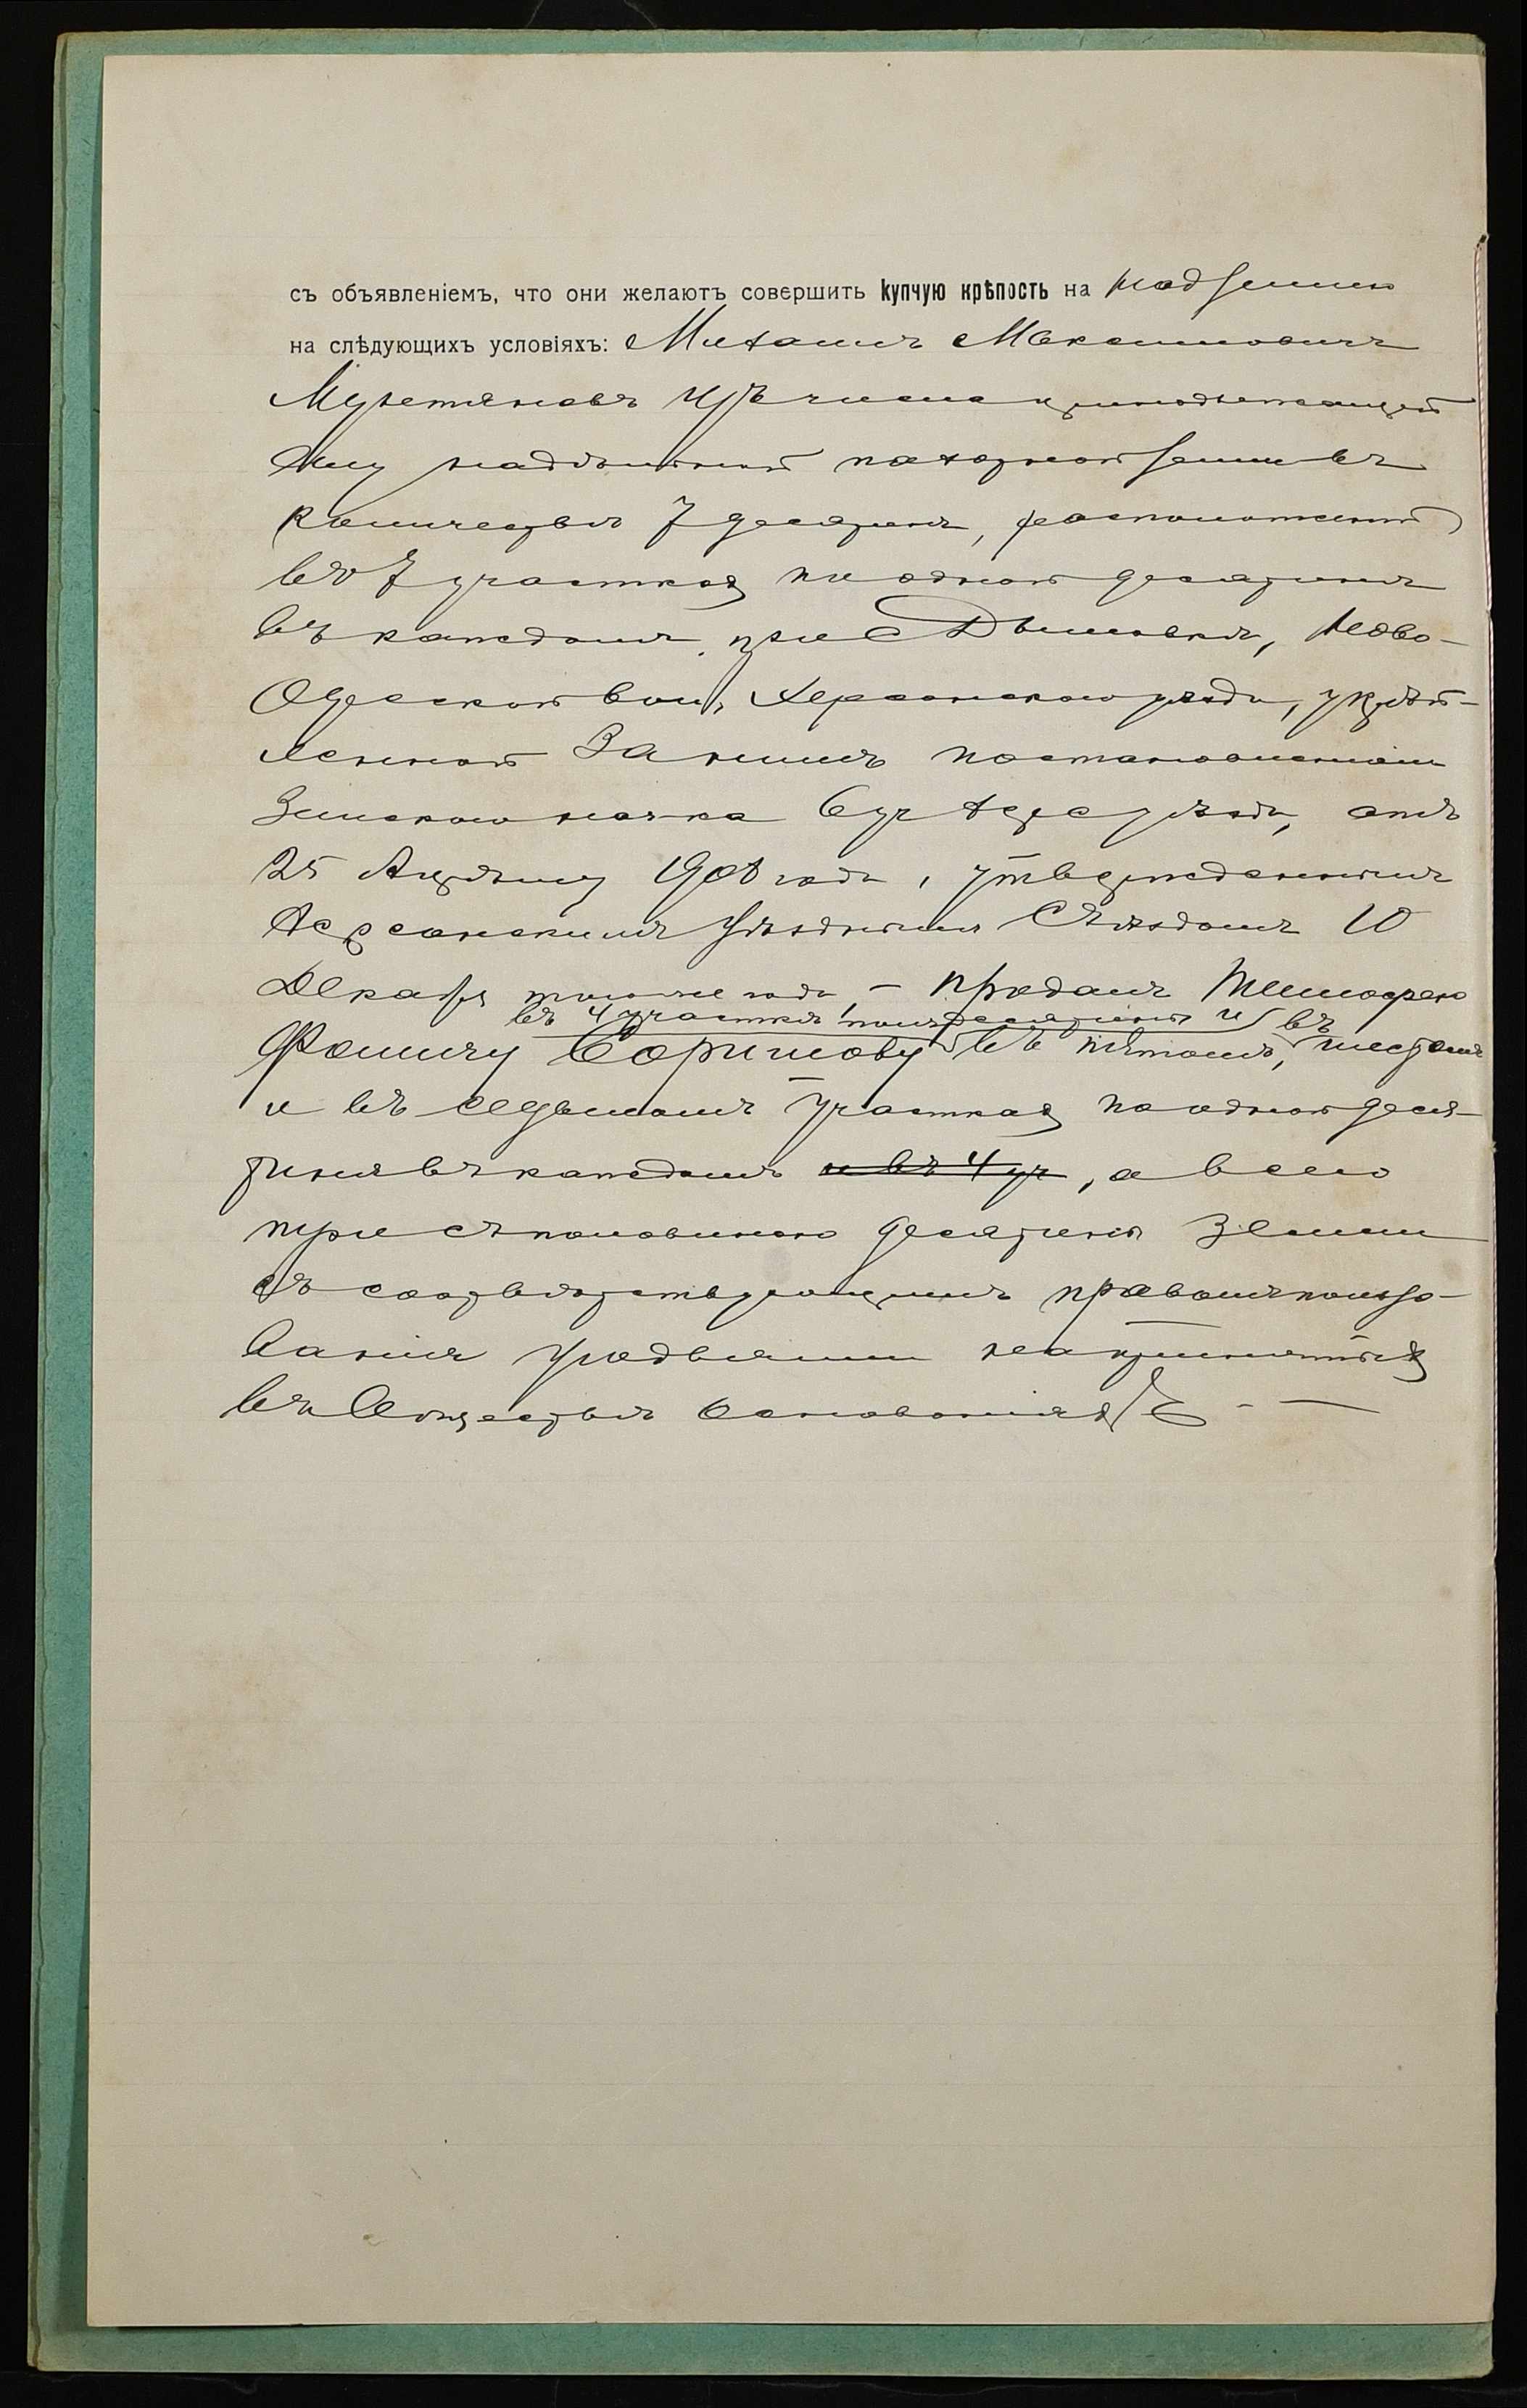 съ объявленіемъ, что они желаютъ совершить купчую крѣпость на над землю
на слѣдующихъ условіяхъ: Михаилъ Максимовичъ
изъ числа принадлежащей
ему надѣльной пахотной земли въ
количествѣ 7 десятинъ, расположенной
въ 7 участкахъ по одной десятинѣ
въ каждомъ, при с Дымовкѣ, Ново-
Одесской вол, Херсонскаго уѣзда, укрѣп-
ленной за нимъ постановленіемъ
Земскаго нач-ка 6 уч Херс уѣзда, отъ
25 Апрѣля 1908 года, утвержденнымъ
Херсонскимъ Уѣзднымъ Съѣздомъ 10
Декабря того же года, – продалъ Тимофею
въ 4 участкѣ полъ десятины и въ
Фомичу въ пятомъ, шестомъ
и въ седьмомъ участкахъ по одной деся-
тинѣ въ каждомъ и въ 4 уч, а всего
три съ половиною десятины земли
съ соотвѣтствующимъ правомъ пользо-
ванія угодьями на принятыхъ
въ Обществѣ основаніяхъ